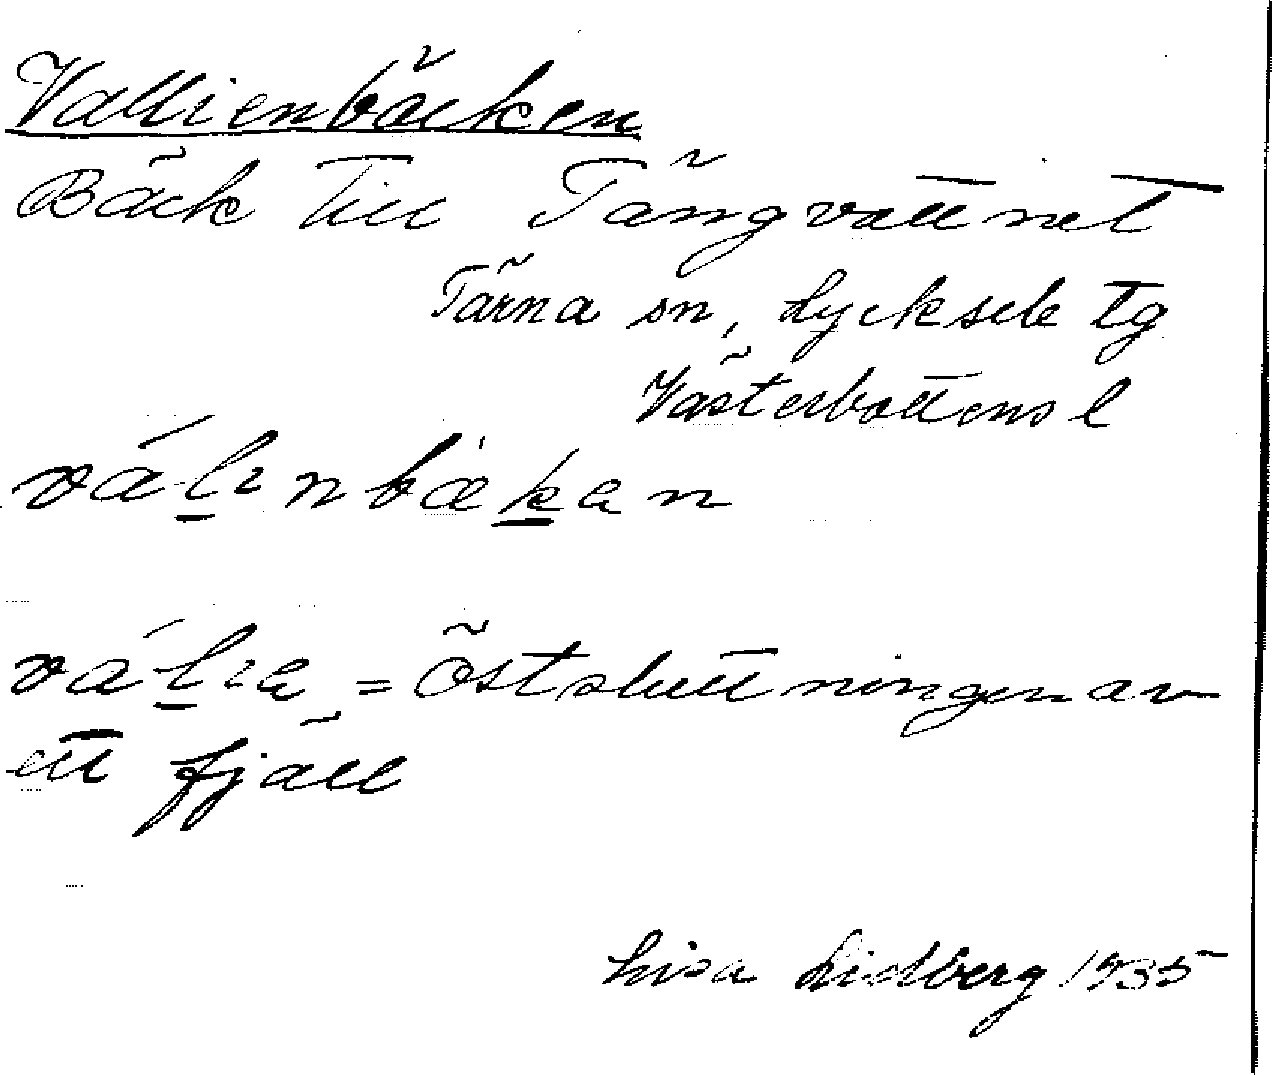 Vallienbäcken
Bäck till Tängvattnet
Tärna sn, Lycksele tg
Västerbottens l
vál̲ınbæk̲an
vál̲ıa = östsluttningen av
ett fjäll
Lisa Lidberg 1935